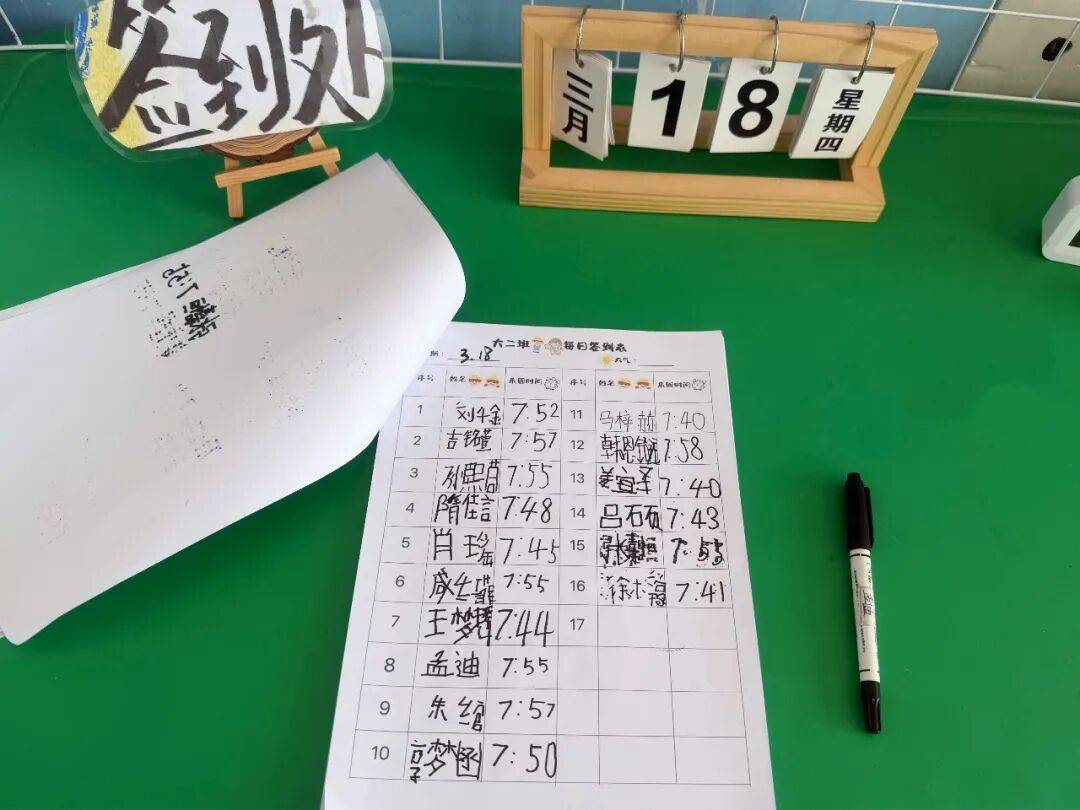 签到处
三月 1 8 星期四
大二班 每日签到表
期: 3.18 天气:
序号 姓名 来园时间 序号 姓名 来园时间
1 7:52 11 马梓赫 7:40
2 吉铭萱 7:57 12 7:58
3 7:55 13 姜宜泽 7:40
4 隋佳言 7:48 14 吕石硕 7:43
5 肖 7:45 15 7:55
6 7:55 16 7:41
7 王梦 7:44 17
8 孟迪 7:55
9 朱 7:57
10 梦函 7:50